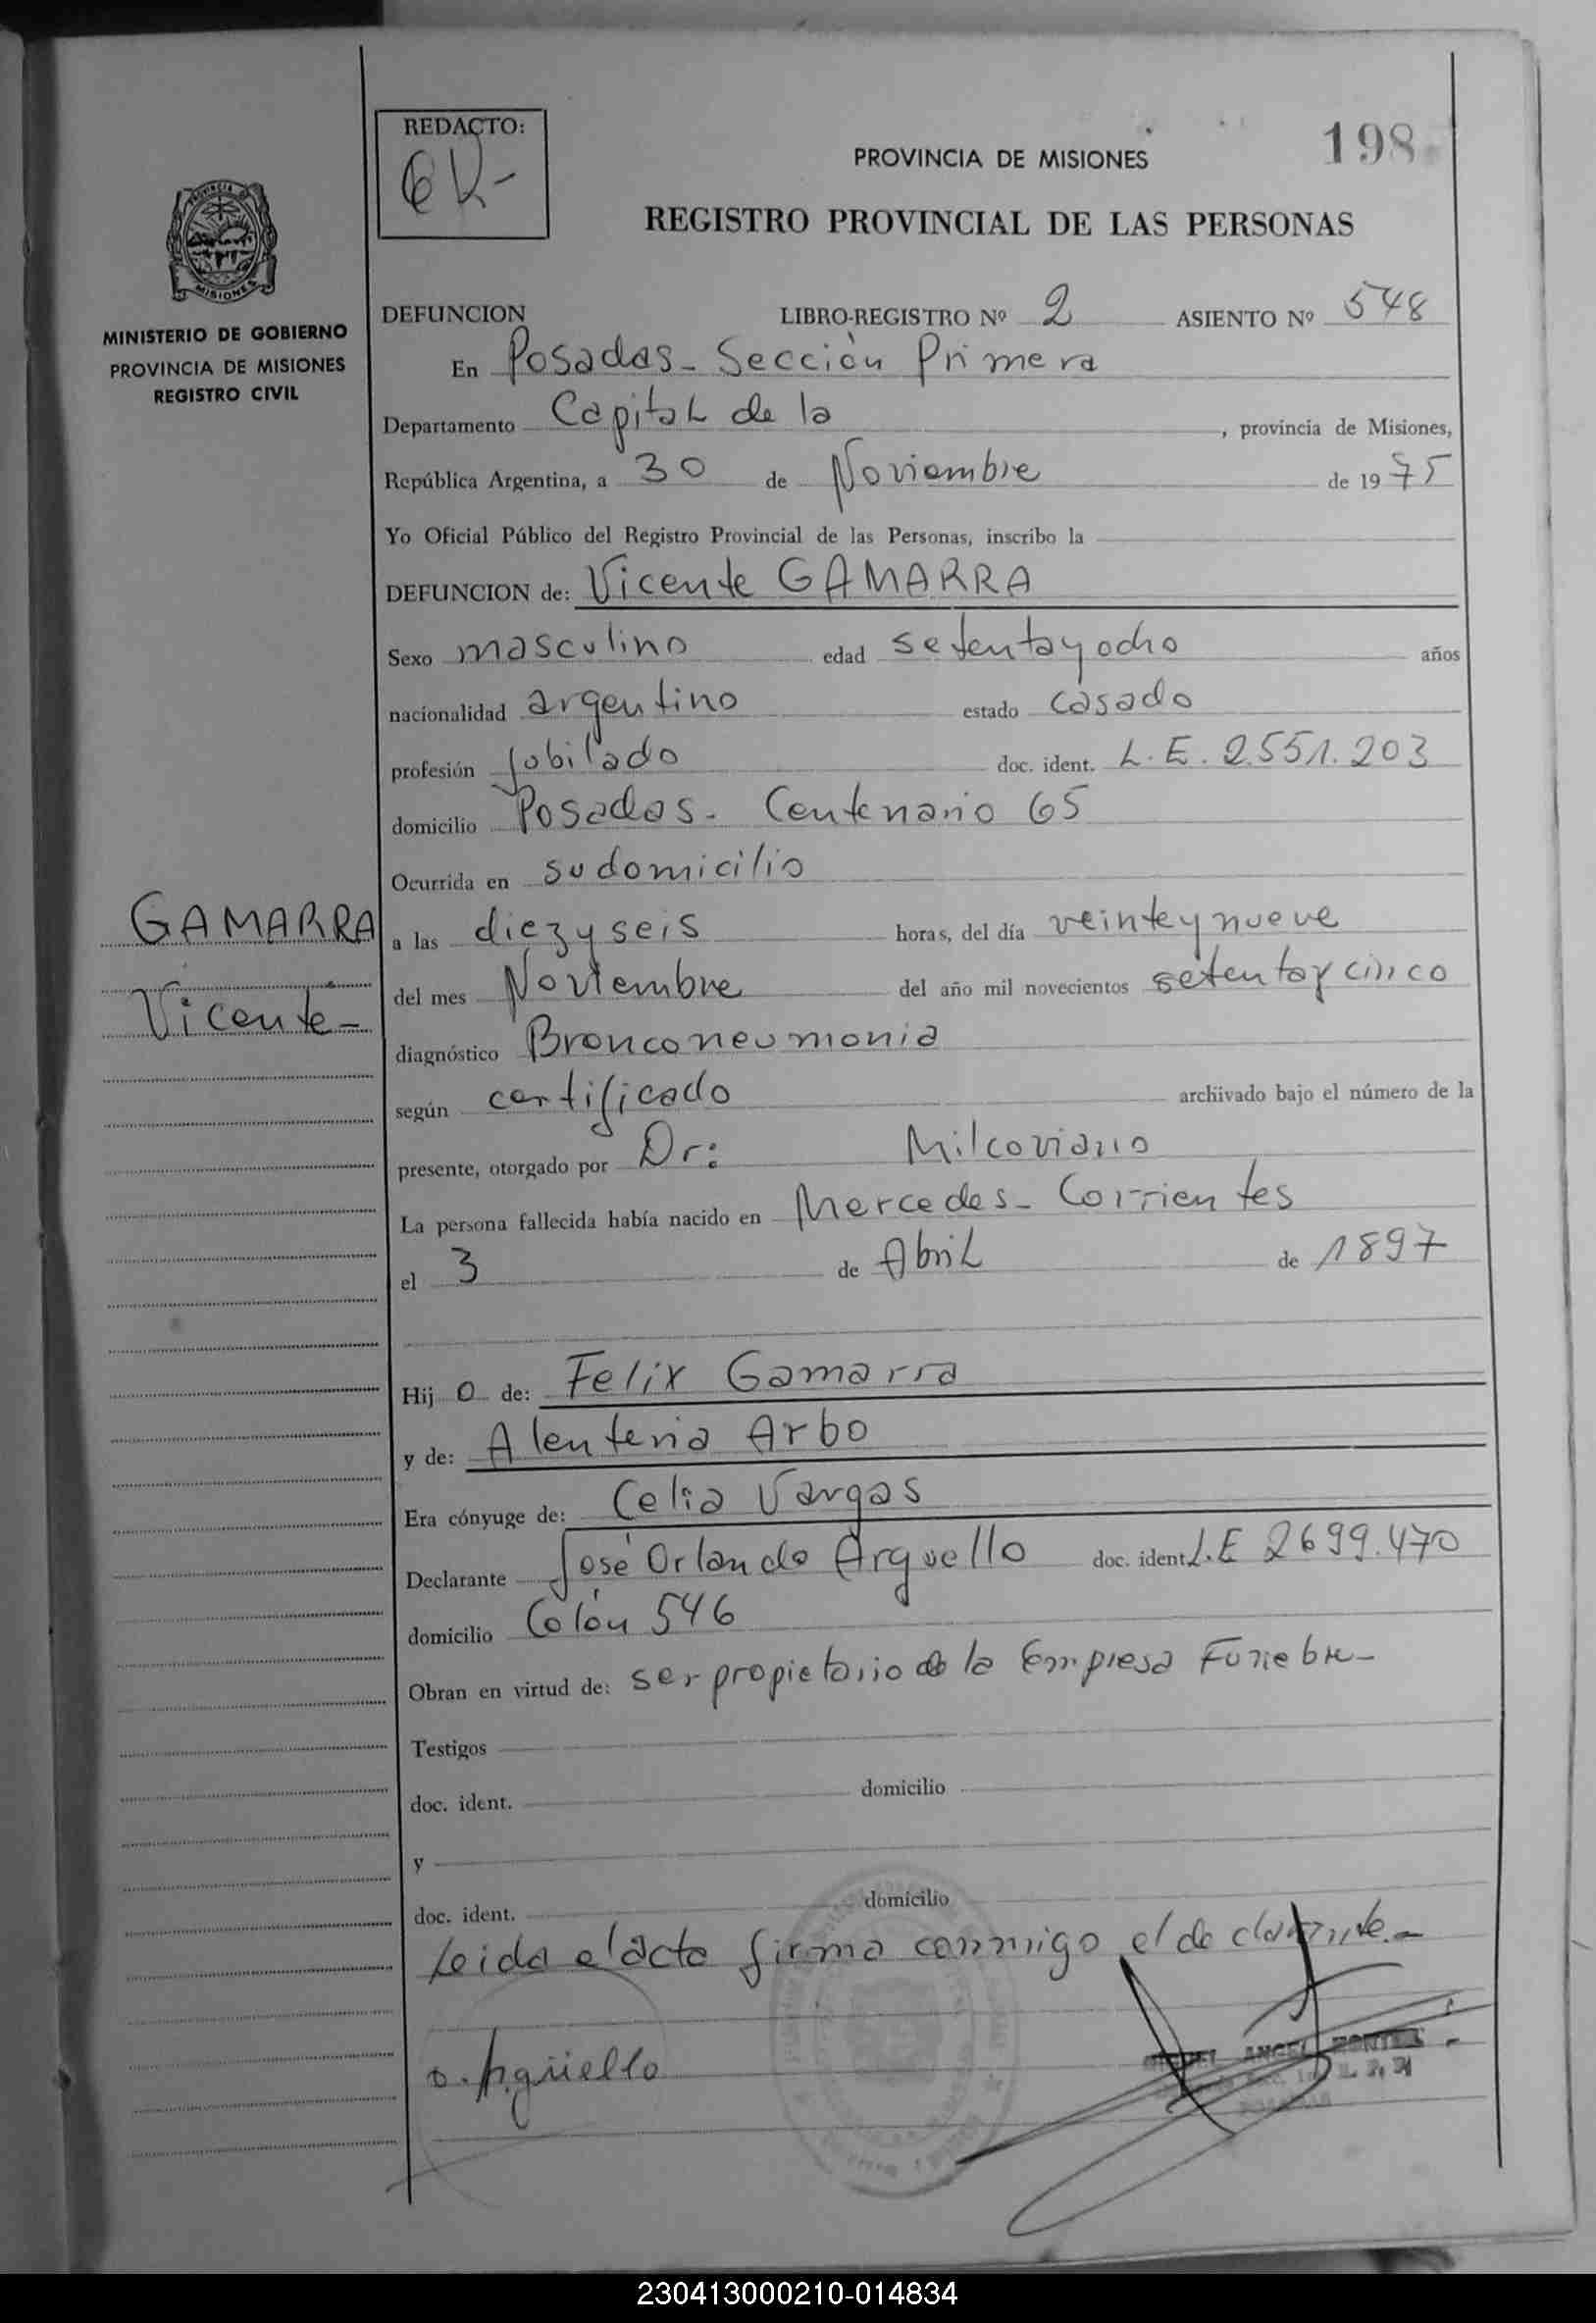 REDACTO:
PROVINCIA DE MISIONES
198
REGISTRO PROVINCIAL DE LAS PERSONAS
MISIONES
MINISTERIO DE GOBIERNO
PROVINCIA DE MISIONES
REGISTRO CIVIL
DEFUNCION LIBRO-REGISTRO Nº 2 ASIENTO Nº 548
En Posadas - Sección Primera
Departamento Capital de la , provincia de Misiones,
República Argentina, a 30 de Noviembre de 1975
Yo Oficial Público del Registro Provincial de las Personas, inscribo la
DEFUNCION de: Vicente GAMARRA
Sexo masculino edad setentayocho años
nacionalidad argentino estado casado
profesión Jubilado doc. ident. L.E. 2.551.203
domicilio Posadas - Centenario 65
Ocurrida en su domicilio
GAMARRA
Vicente -
a las diezyseis horas, del día veinteynueve
del mes Noviembre del año mil novecientos setentaycinco
diagnóstico Bronconeumonia
según certificado archivado bajo el número de la
presente, otorgado por Dr: Milcoviano
La persona fallecida había nacido en Mercedes - Corrientes
el 3 de Abril de 1897
Hij o de: Felix Gamarra
y de: Alenteria Arbo
Era cónyuge de: Celia Vargas
Declarante José Orlando Arguello doc. ident. L.E 2699.470
domicilio Colón 546
Obran en virtud de: ser propietario de la Empresa Funebre -
Testigos
doc. ident. domicilio
y
doc. ident. domicilio
Leida el acta firma conmigo el declarante.-
O. Argüello
ANGEL
230413000210-014834